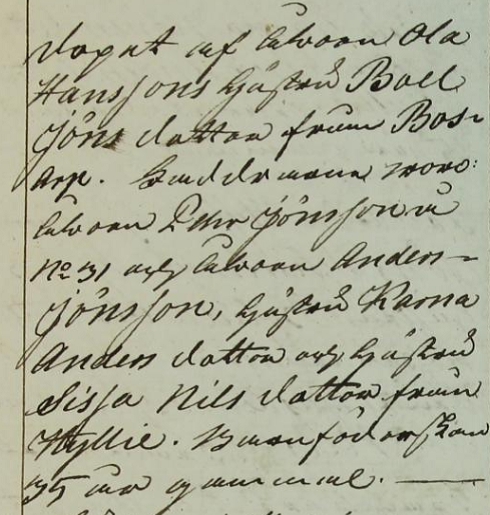 döpt af åboen Ola
Hanssons hustru Boel
Jöns dotter från Bos-
arp. Faddrarne voro:
åboen Pehr Jönsson å
No 31 och åboen Anders
Jönsson, hustru Karna
Anders dotter och hustru
Sissa Nils dotter från
Hyllie. Barnföderskan
35 år gammal.